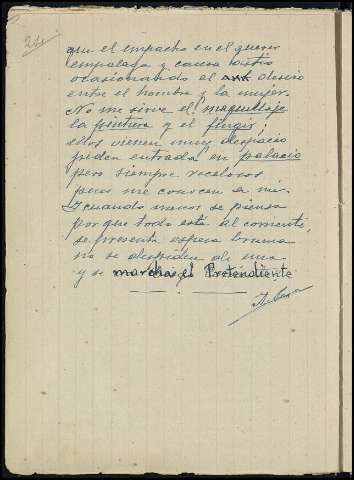 24
que el empacho en el querer
empalaga y causa hastio
ocasionando el desvio
entre el hombre y la mujer.
No me sirve el "maquillaje
la pintura y el fingir;
ellos vienen muy despacio
piden entrada en palacio
pero siempre recelosos
pues me conocen a mi.
Y cuando menos se piensa
por que todo está al corriente,
se presenta espesa bruma
no se despiden de una
y se marcha el Pretendiente